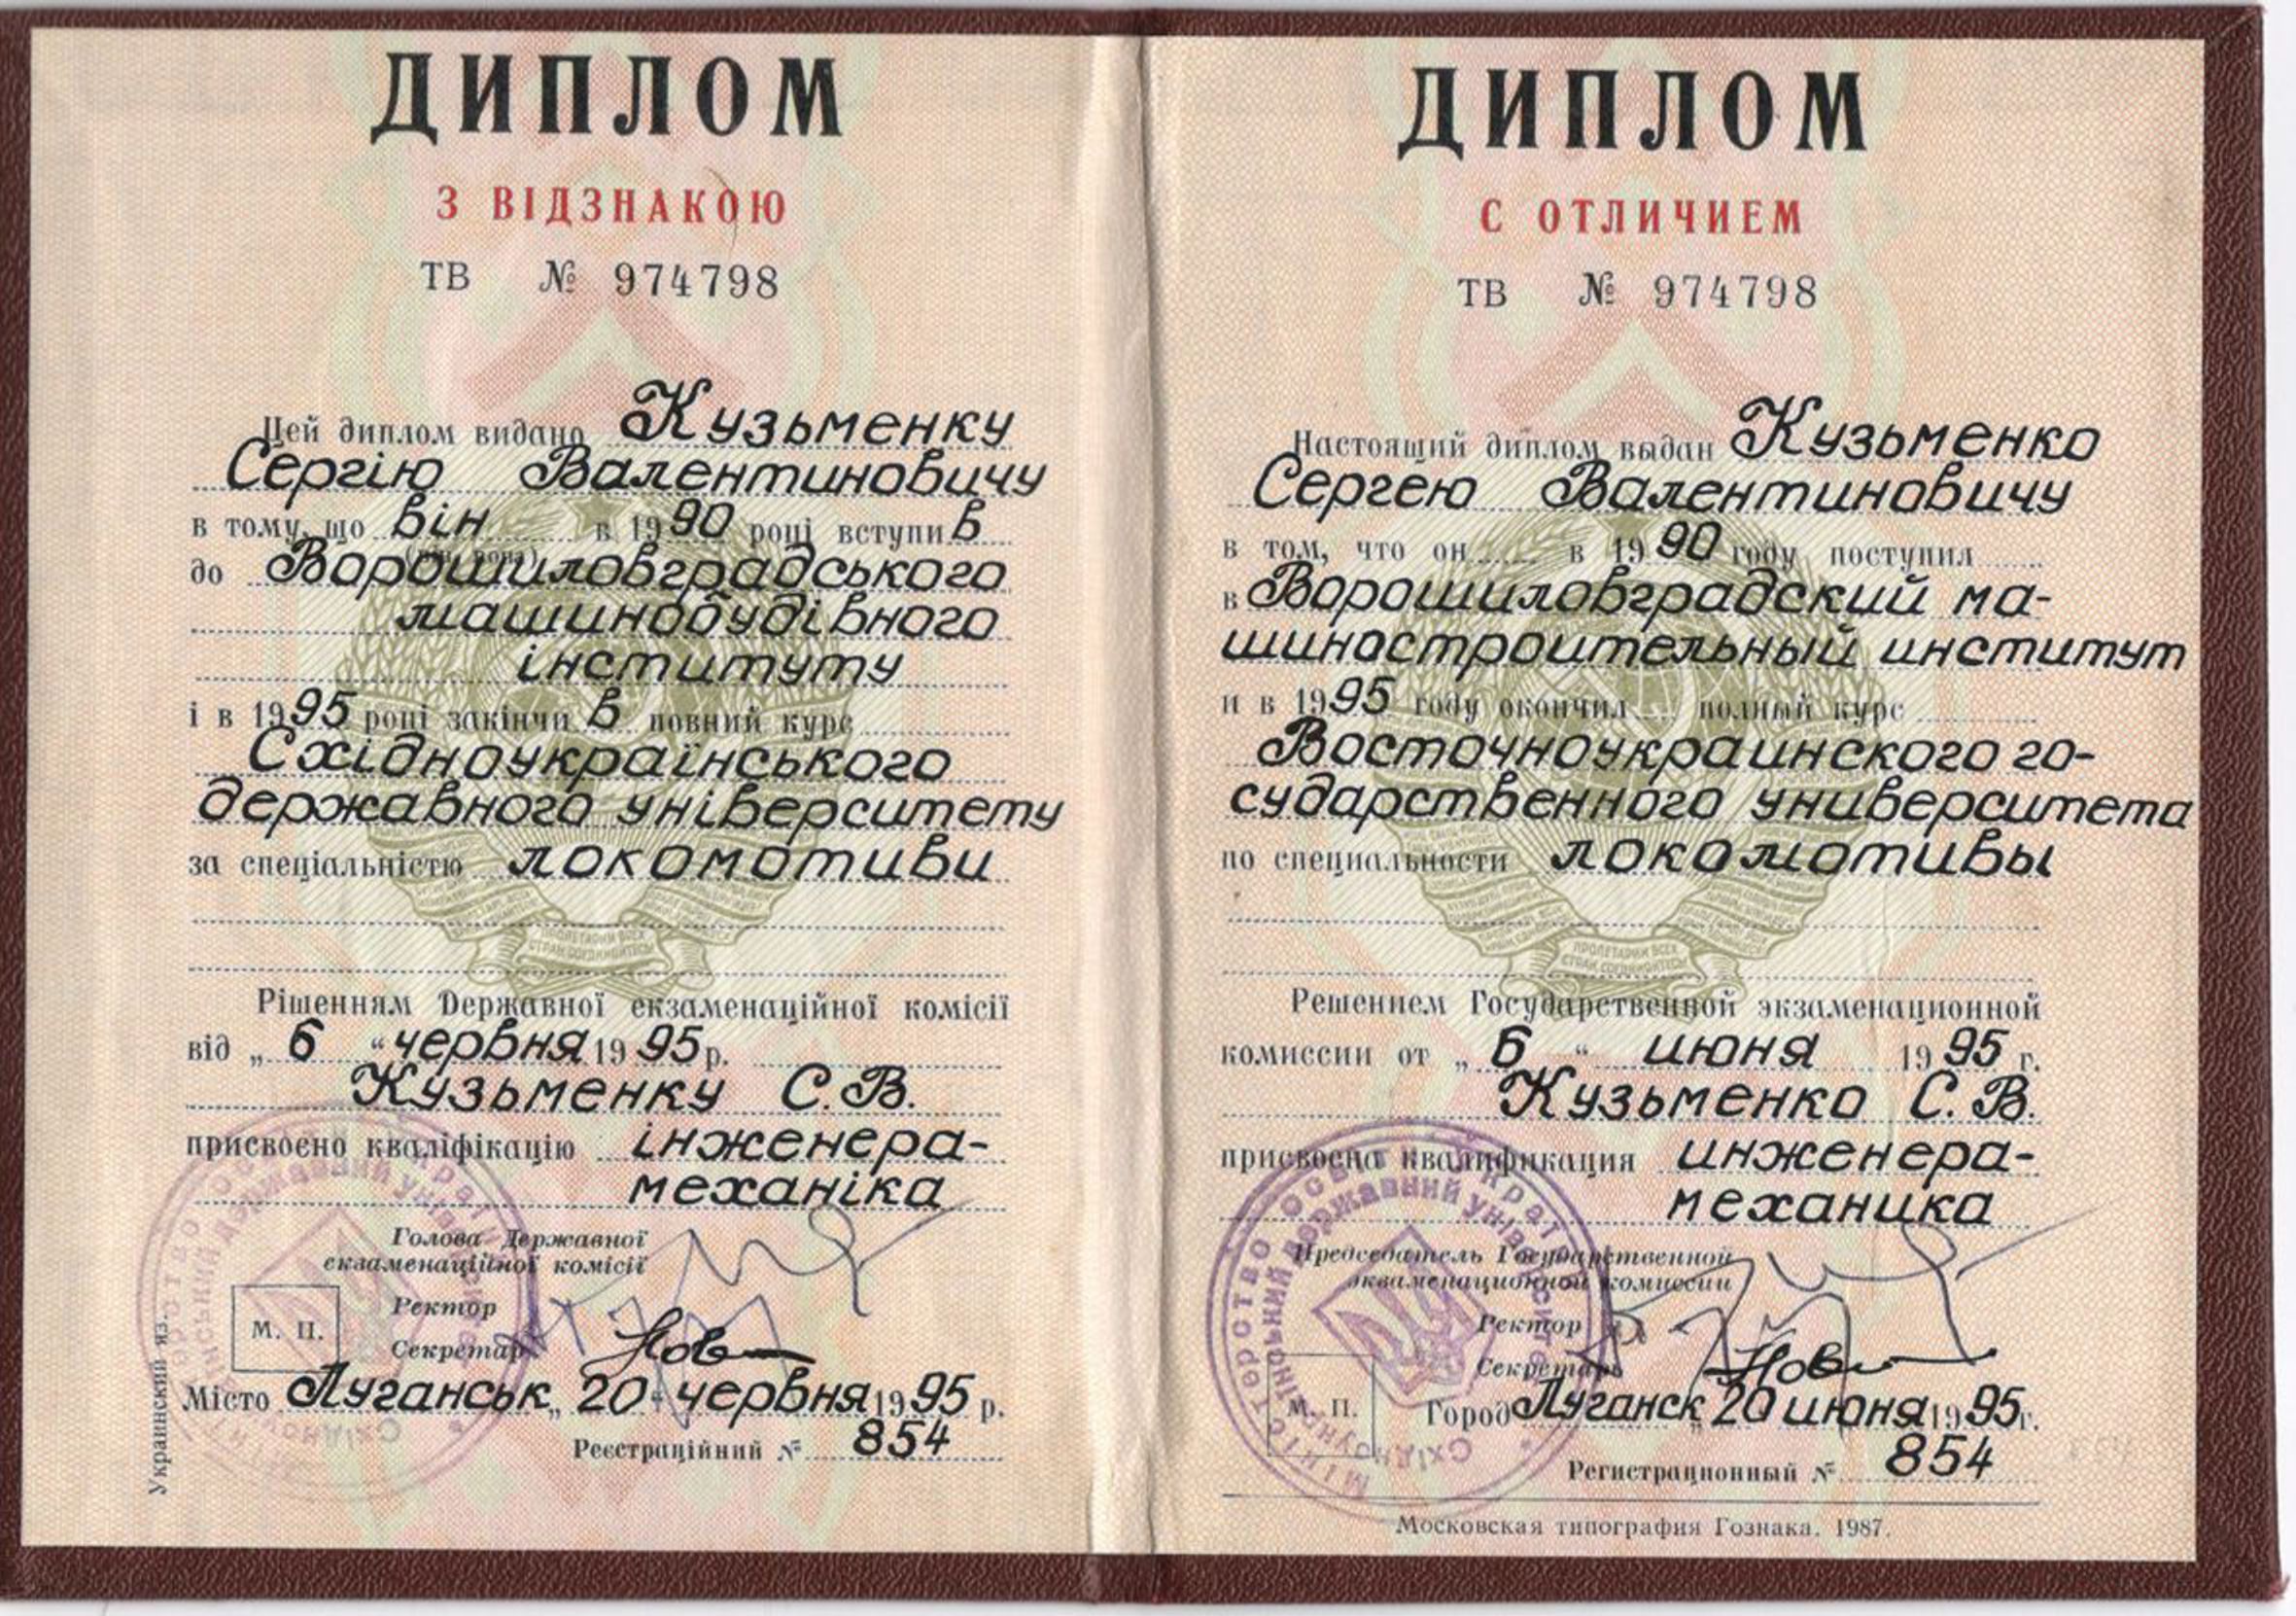 ДИПЛОМ
З ВІДЗНАКОЮ
ТВ № 974798
Цей диплом видано Кузьменку
Сергію Валентиновичу
в тому, що він в 1990 році вступив
(він, вона)
до Ворошиловградського
машинобудівного
інституту
і в 1995 році закінчив повний курс
Східноукраїнського
державного університету
за спеціальністю локомотиви
ПРОЛЕТАРИИ ВСЕХ
СТРАН, СОЕДИНЯЙТЕСЬ!
Рішенням Державної екзаменаційної комісії
від „6“ червня 1995 р.
Кузьменку С.В.
присвоєно кваліфікацію інженера-
механіка
Голова Державної
екзаменаційної комісії
Ректор
М. П.
Секретар
Місто Луганськ „20“ червня 1995 р.
Реєстраційний № 854
Украинский яз.
ДИПЛОМ
С ОТЛИЧИЕМ
ТВ № 974798
Настоящий диплом выдан Кузьменко
Сергею Валентиновичу
в том, что он в 1990 году поступил
в Ворошиловградский ма-
шиностроительный институт
и в 1995 году окончил полный курс
Восточноукраинского го-
сударственного университета
по специальности локомотивы
ПРОЛЕТАРИИ ВСЕХ
СТРАН, СОЕДИНЯЙТЕСЬ!
Решением Государственной экзаменационной
комиссии от „6“ июня 1995 г.
Кузьменко С.В.
присвоена квалификация инженера-
механика
Председатель Государственной
экзаменационной комиссии
Ректор
Секретарь
М. П.
Город Луганск „20 июня 1995 г.
Регистрационный № 854
Московская типография Гознака. 1987.